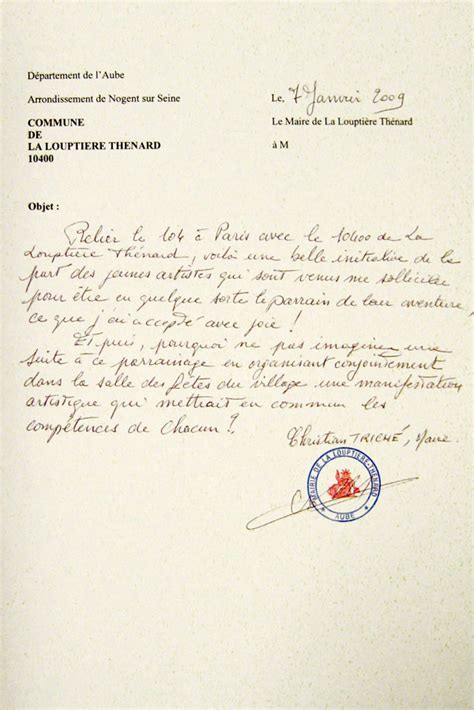 Département de l'Aube
Arrondissement de Nogent sur Seine
Le, 7 Janvier 2009
COMMUNE
DE
LA LOUPTIERE THENARD
10400
Le Maire de La Louptière Thénard
à M
Objet :
Relier le 104 à Paris avec le 10400 de La
Louptière Thénard, voilà une belle initiative de la
part des jeunes artistes qui sont venus me solliciter
pour être en quelque sorte le parrain de leur aventure,
ce que j'ai accepté avec joie !
Et puis, pourquoi ne pas imaginer une
suite à ce parrainage en organisant conjointement
dans la salle des fêtes du village une manifestation
artistique qui mettrait en commun les
compétences de chacun ?
Christian TRICHÉ, Maire
MAIRIE DE LA LOUPTIERE-THENARD
* AUBE *